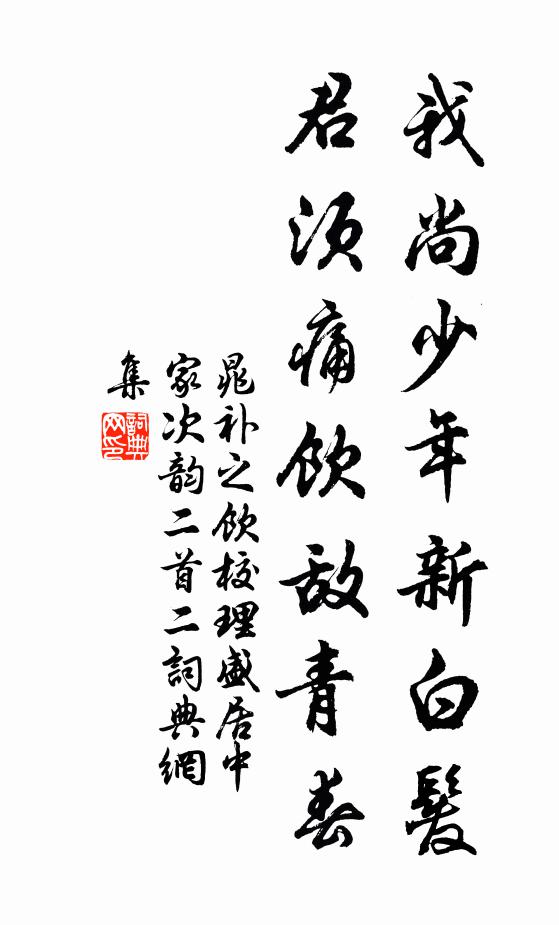 我尚少年新白髮
君須痛飲敵青春
晁補之飲校理盛居中
家次韵二首二詞典網
集
詞典
网印